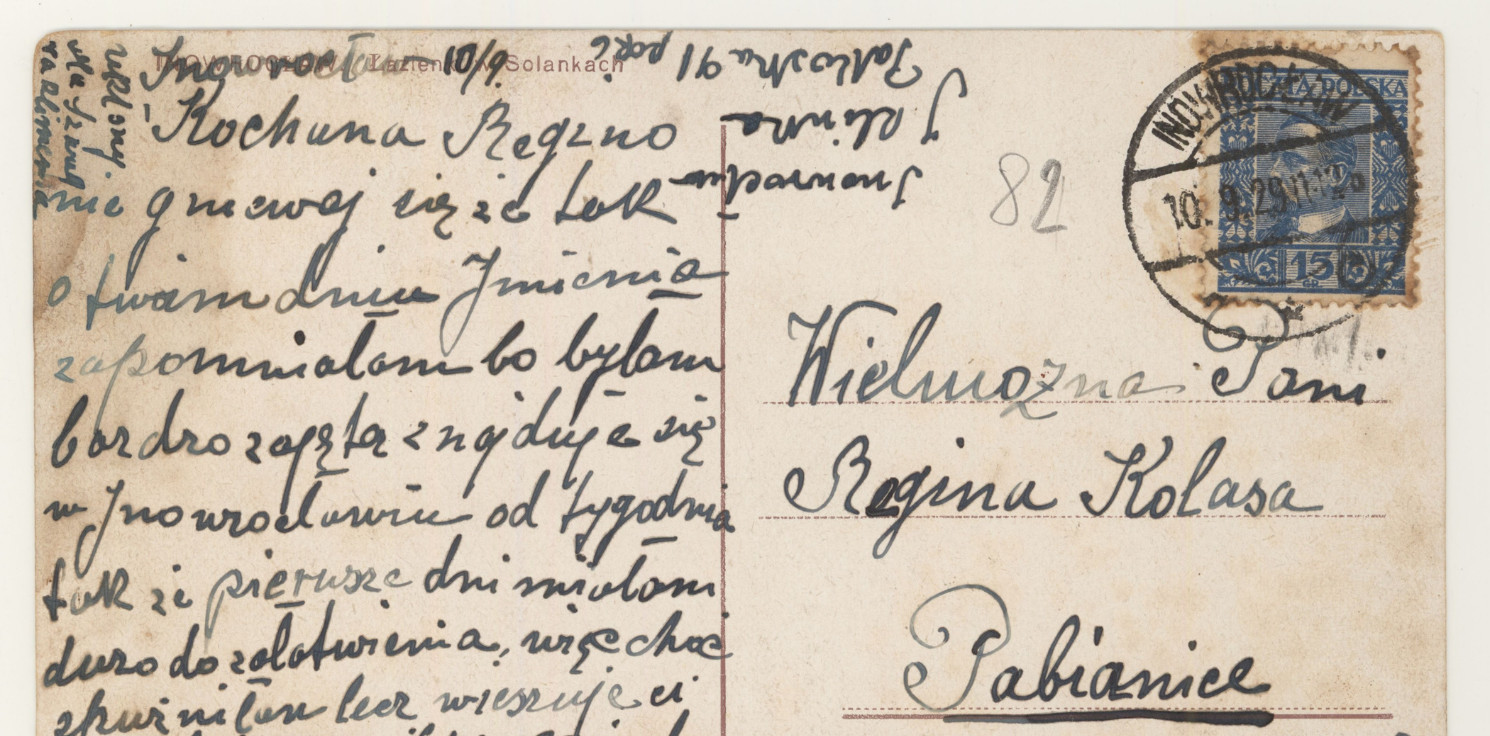 INOWROCŁAW Łazienki w Solankach
Inowrocław 10/9.
Kochana Regino
nie gniewaj się że tak
o twam dniu Imienia
zapomniałam bo byłam
bardzo zajęta znajduje się
w Inowrocławiu od tygodnia
tak że pierwsze dni miałam
dużo do załatwienia, więc choć
spuźniłam lecz wieszuje ci
ukłony
dla
Inowrocław
Pakoska 41
82
INOWROCŁAW
10. 9. 29
POCZTA POLSKA
15
Wielmożna Pani
Regina Kolasa
Pabianice